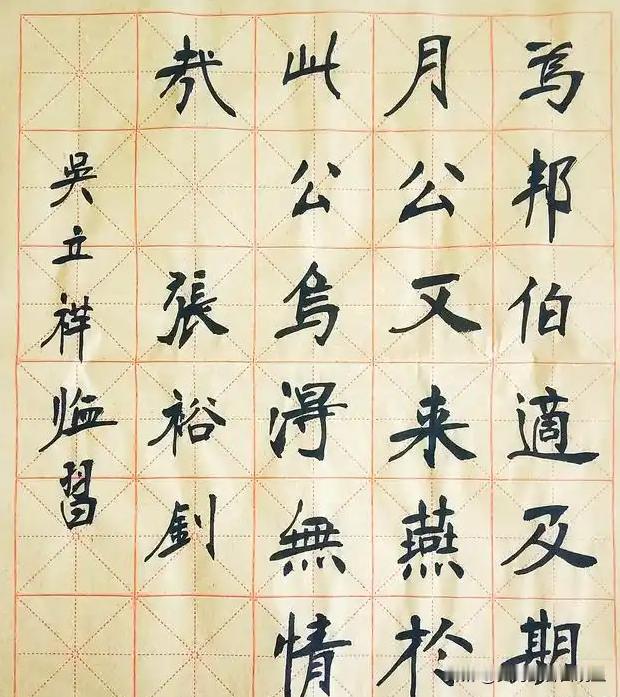 為邦伯適及期
月公又来燕於
此公烏得無情
哉 張裕釗
吳立祥臨習